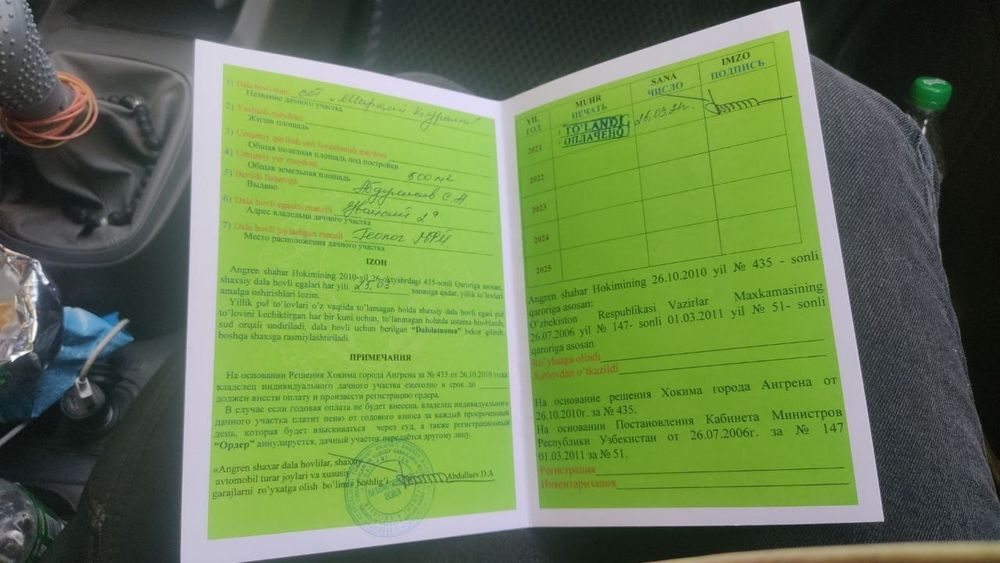 1) Dala hovli nomi сот „
Название дачного участка
2) Yashash maydoni
Жилая площадь
3) Umumiy qurilish osti foydalanish maydoni
Общая полезная площадь под постройки
4) Umumiy yer maydoni 500 m2
Общая земельная площадь
5) Berildi fuqaroga
Выдано
6) Dala hovli egasini manzili
Адрес владельца дачного участка
7) Dala hovli joylashgan manzil Геолог МФЙ
Место расположения дачного участка
IZOH
Angren shahar Hokimining 2010-yil 26-oktyabrdagi 435-sonli Qaroriga asosan,
shaxsiy dala hovli egalari har yili 25,03 sanasiga qadar, yillik to'lovlari
amalga oshirishlari lozim.
Yillik pul to'lovlari o'z vaqida to'lamagan holda shaxsiy dala hovli egai pul
to'lovini kechiktirgan har bir kuni uchun, to'lanmagan holatda ustama hisoblanib,
sud orqali undiriladi, dala hovli uchun berilgan "Dalolatnoma" bekor qilinib,
boshqa shaxsga rasmiylashtiriladi.
ПРИМЕЧАНИЯ
На основании Решения Хокима города Ангрена за № 435 от 26.10.2010 года
владелец индивидуального дачного участка ежегодно в срок до
должен внести оплату и произвести регистрацию ордера.
В случае если годовая оплата не будет внесена, владелец индивидуального
дачного участка платит пеню от годового взноса за каждый просроченный
день, которая будет взыскиваться через суд, а также регистрационный
"Ордер" аннулируется, дачный участок передаётся другому лицу.
«Angren shaxar dala hovlilar, shaxsiy
avtomobil turar joylari va xususiy
garajlarni ro'yxatga olish bo'limi boshlig'i Abdullaev.D.A
YIL ГОД MUHR ПЕЧАТЬ SANA ЧИСЛО IMZO ПОДПИСЬ
2021 TO'LANDI ОПЛАЧЕНО
2022
2023
2024
2025
Angren shahar Hokimining 26.10.2010 yil № 435 - sonli
qaroriga asosan:
O'zbekiston Respublikasi Vazirlar Maxkamasining
26.07.2006 yil № 147- sonli 01.03.2011 yil № 51- sonli
qaroriga asosan:
Ro'yhatga olindi
Xatlovdan o'tkazildi
На основание решения Хокима города Ангрена от
26.10.2010г. за № 435.
На основании Постановления Кабинета Министров
Республики Узбекистан от 26.07.2006г. за № 147
01.03.2011 за № 51.
Регистрация
Инвентаризация